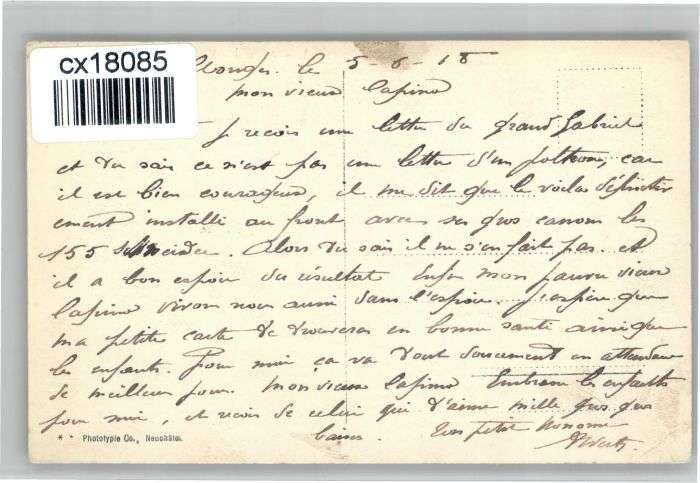 cx18085
le 5-6-18
mon vieux lapino
Je recois une lettre du grand Gabriel
et tu sais ce n'est pas une lettre d'un poltron, car
il est bien courageux, il me dit que le voila définitiv
ement installé au front avec ses gros canons les
155 Schneider. Alors tu sais il ne s'en fait pas. et
il a bon espoir du résultat Enfin mon pauvre vieux
lapino vivons nous aussi dans l'espoir. J'espère que
ma petite carte te trouveras en bonne santé ainsi que
les enfants. Pour moi ça va tout doucement en attendant
de meilleurs jours. Mon vieux lapino Embrasse les enfants
pour moi, et recois de celui qui t'aime mille gros gros
baisers. Ton petit homme
* * Phototypie Co., Neuchâtel